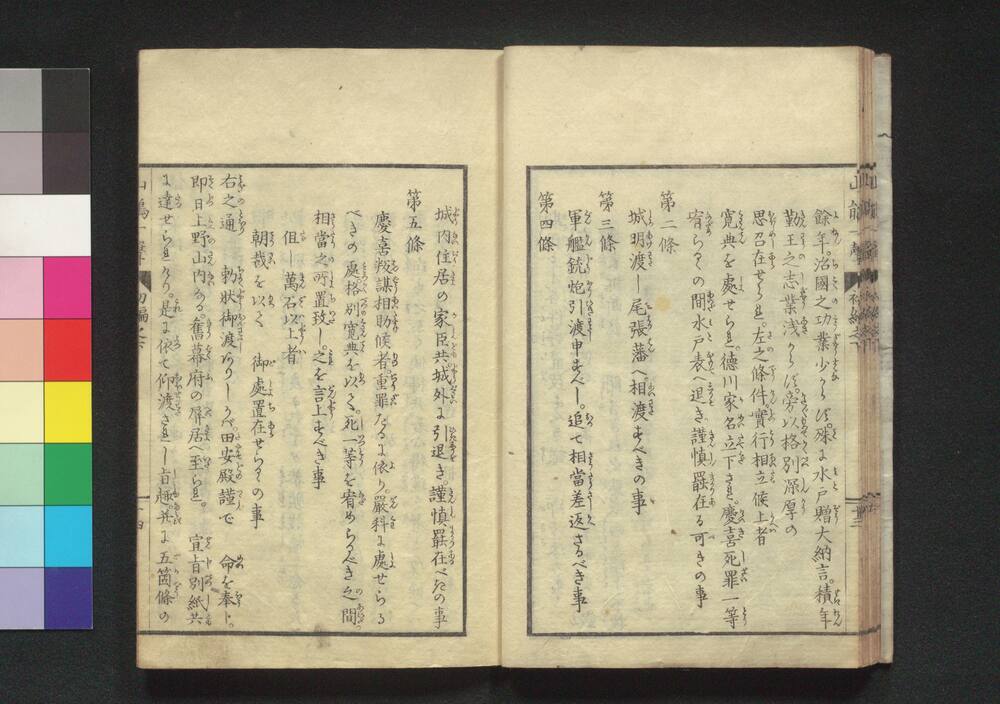 餘年。治國之功業少からず。殊に水戸贈大納言。積年
勤王之志業浅からず。旁以格別深厚の
思召在せられ。左之條件實行相立候上者
寛典を處せられ。德川家名立下され。慶喜死罪一等
宥らるゝの間水戸表へ退き。謹慎罷在る可きの事
第二條
城明渡し尾張藩へ相渡すべきの事
第三條
軍艦銃炮引渡申すべし。追て相當差返さるべき事
第四條
城内住居の家臣共城外に引退き謹慎罷在べきの事
第五條
慶喜叛謀相助候者。重罪たるに依り。嚴科に處せらる
べきの處格別寛典を以て。死一等を宥めらるべき之間
相當之所置致し。之を言上すべき事
但し萬石以上者
朝裁を以て 御處置在せらるゝの事
右之通 勅狀御渡 田安殿謹で 命を奉ト。
即日上野山内なる。舊幕府の屏居へ至られ。 宣旨別紙共
に達せられけり。是に依て仰渡されし旨趣。并に五箇條の